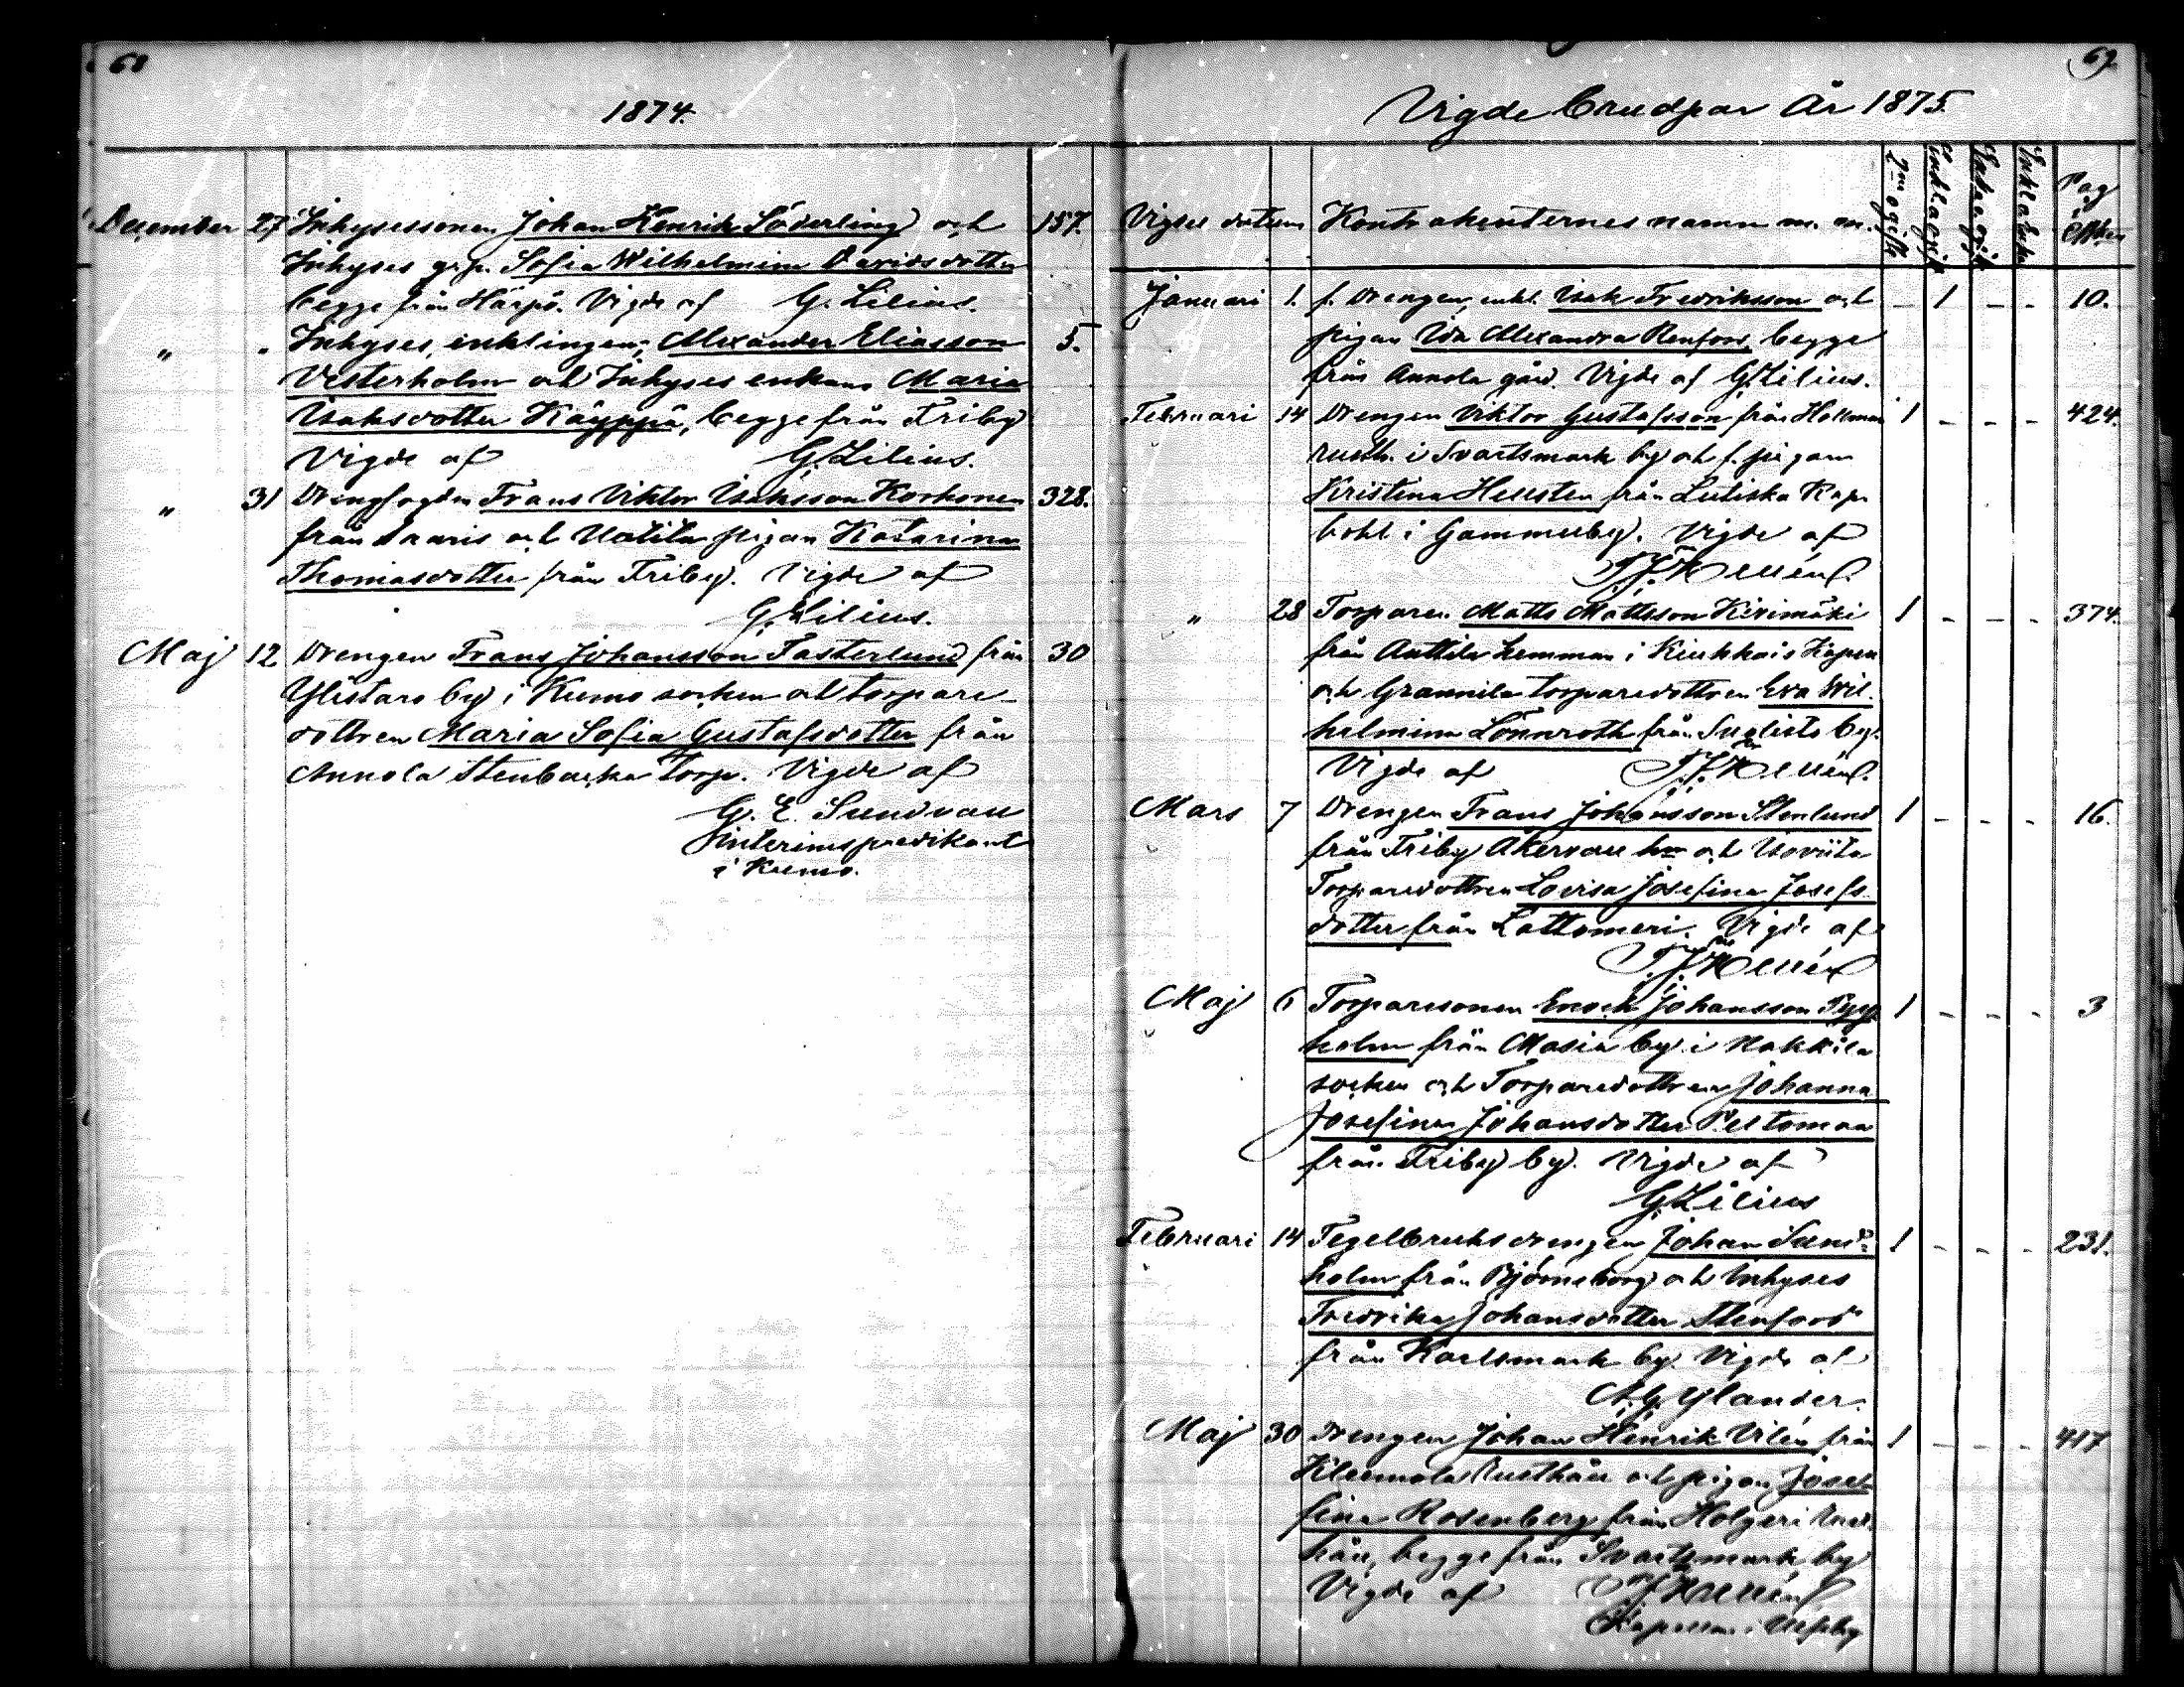 68
1874.
December 27 Inhysessonen Johan Henrik Söderling och 157.
Inhyses gp. Sofia Wilhelmina Davidsdotter
begge från Härpö. Vigde af G. Lilius.
" " Inhyses enklingen Alexander Eliasson 5.
Vesterholm och Inhyses enkan Maria
Isaksdotter Käyppä, begge från Friby
Vigde af G. Lilius.
" 31 Drengfogden Frans Viktor Isaksson Korhonen 328.
från Saaris och Uotila pigan Katarina
Thomasdotter från Friby. Vigde af
G. Lilius.
Maj 12 Drengen Frans Johansson Tasterlund från 30
Ylistaro by i Kumo socken och torpare-
dottren Maria Sofia Gustafsdotter från
Annola Stenbacka torp. Vigde af
G. E. Sundvall
interimspredikant
i Kumo.
69
Vigde Brudpar År 1875.
Vigsel datum Kontrahenternes namn m. m. 2ne ogifte Pag
Januari 1. f. Drengen, enkl. Isak Fredriksson och – 1 – – 10.
pigan Ida Alexandra Renfors, begge
från Annola gård. Vigde af G. Lilius.
Februari 14 Drengen Viktor Gustafsson från 1 – – – 424.
rusth. i Svartsmark by och f. pigan
Kristina Hellsten från
bohl i Gammelby. Vigde af
" 28 Torparen Matts Mattsson Kivimäki 1 – – – 374.
från Anttila hemman i
och Grannila torparedottren Eva Wil-
helmina Lönnroth från by.
Vigde af
Mars 7 Drengen Frans Johansson Stenlund 1 – – – 16.
från Friby Åkervall hn och
Torparedottren Lovisa Josefina Josefs-
dotter från Lattomeri. Vigde af
Maj 6 Torparesonen Enoch Johansson 1 – – – 3
holm från Masia by i Nakkila
socken och Torparedottren Johanna
Josefina Johansdotter Peltomaa
från Friby by. Vigde af
G. Lilius
Februari 14 Tegelbruksdrengen Johan Sund- 1 – – – 231.
holm från Björneborg och Inhyses
Fredrika Johansdotter Stenfors
från Karlsmark by. Vigde af
A. G. Ylander.
Maj 30 Drengen Johan Henrik Vilén från 1 – – – 417
Klemola Rusthåll och pigan Jose-
fina Rosenberg från Holgeri Rust-
håll, begge från Svartsmark by
Vigde af
Kapellan i Ulfsby